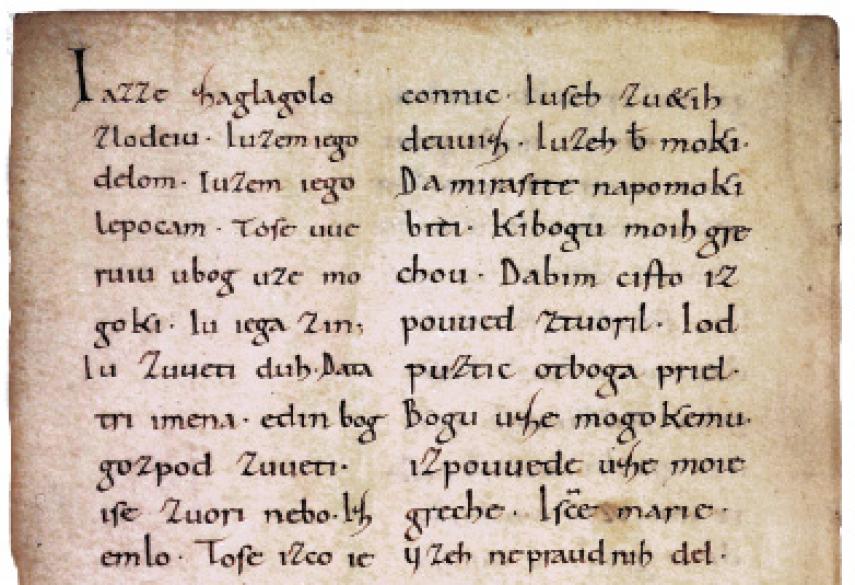 Iazze zaglagolo
zlodeiu. Iuzem iego
delom. Iuzem iego
lepocam. Tose uue
ruiu ubog uze mo
goki. Iu iega zin;
Iu zuueti duh. Data
tri imena. edin bog
gozpod zuueti.
ise zuori nebo. Iz
emlo. Tose izco ie
connic. Iuseh zu&ih
deuuiz. Iuzeh ƀ moki.
Da mirasite napomoki
biti. Kibogu moih gre
chou. Dabim cisto iz
pouued ztuoril. Iod
puztic otboga priel.
Bogu uze mogokemu.
izpouuede uze moie
greche. Isc̄e marie.
yzeh nepraudnih del.